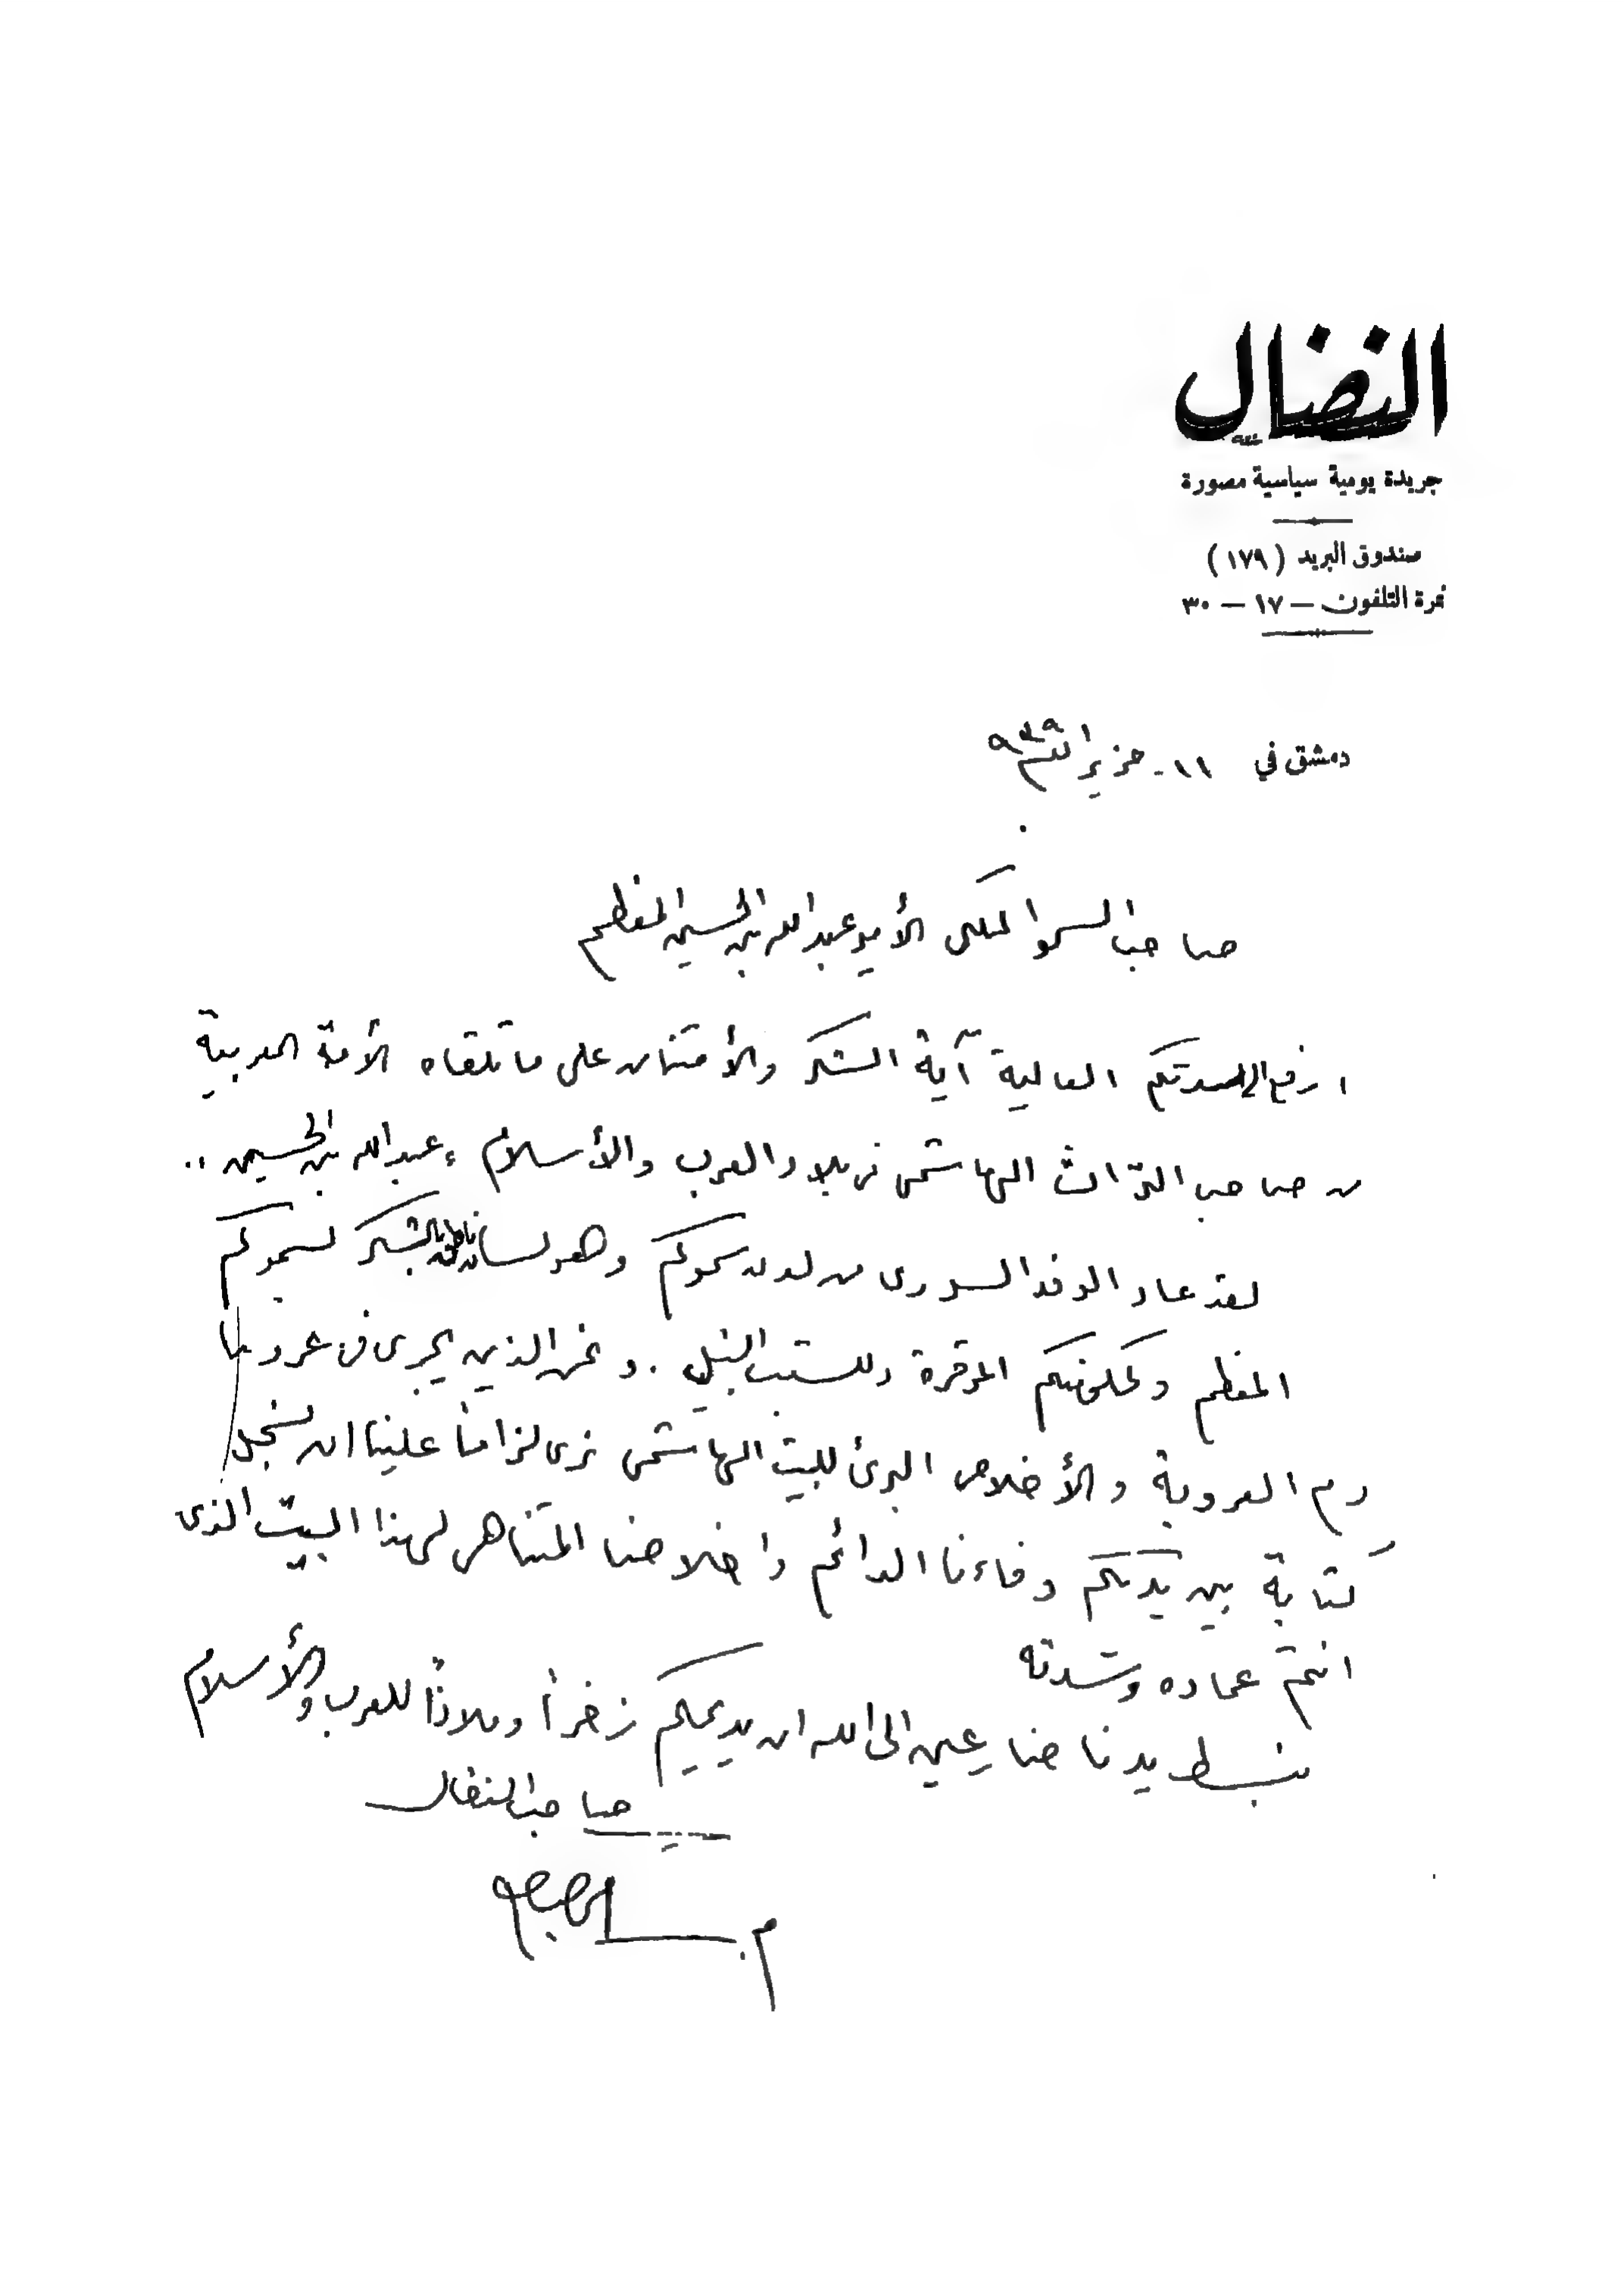 النضال
جريدة يومية سياسية مصورة
صندوق البريد (١٧٩)
نمرة التلفون — ١٧ — ٣٠
دمشق في ١١ - حزيران ٩٣٩
صاحب السمو الملكي الأمير عبد الله بن الحسين المعظم
ارفع الى سدتكم العالية آية الشكر والأمتنان على ما تلقاه الأمة العربية
من صاحب التراث الهاشمي في بلاد العرب والأسلام، عبد الله بن الحسين ..
لقد عاد الوفد السوري من لدن سموكم وهو لسان ناطق بالشكر لسموكم
المعظم ولحكومتكم الموقرة وللشعب النبيل . ونحن الذين يجري في عروقنا
دم العروبة والأخلاص البرئ للبيت الهاشمي نرى لزاماً علينا ان نسجل
كتابة بين يديكم وفاءنا الدائم واخلاصنا المتناهي لهذا البيت الذي
انتم عماده وسدنته
نبسط يدنا ضارعين الى الله ان يديمكم ذخراً وملاذاً للعرب والأسلام
صاحب النضال